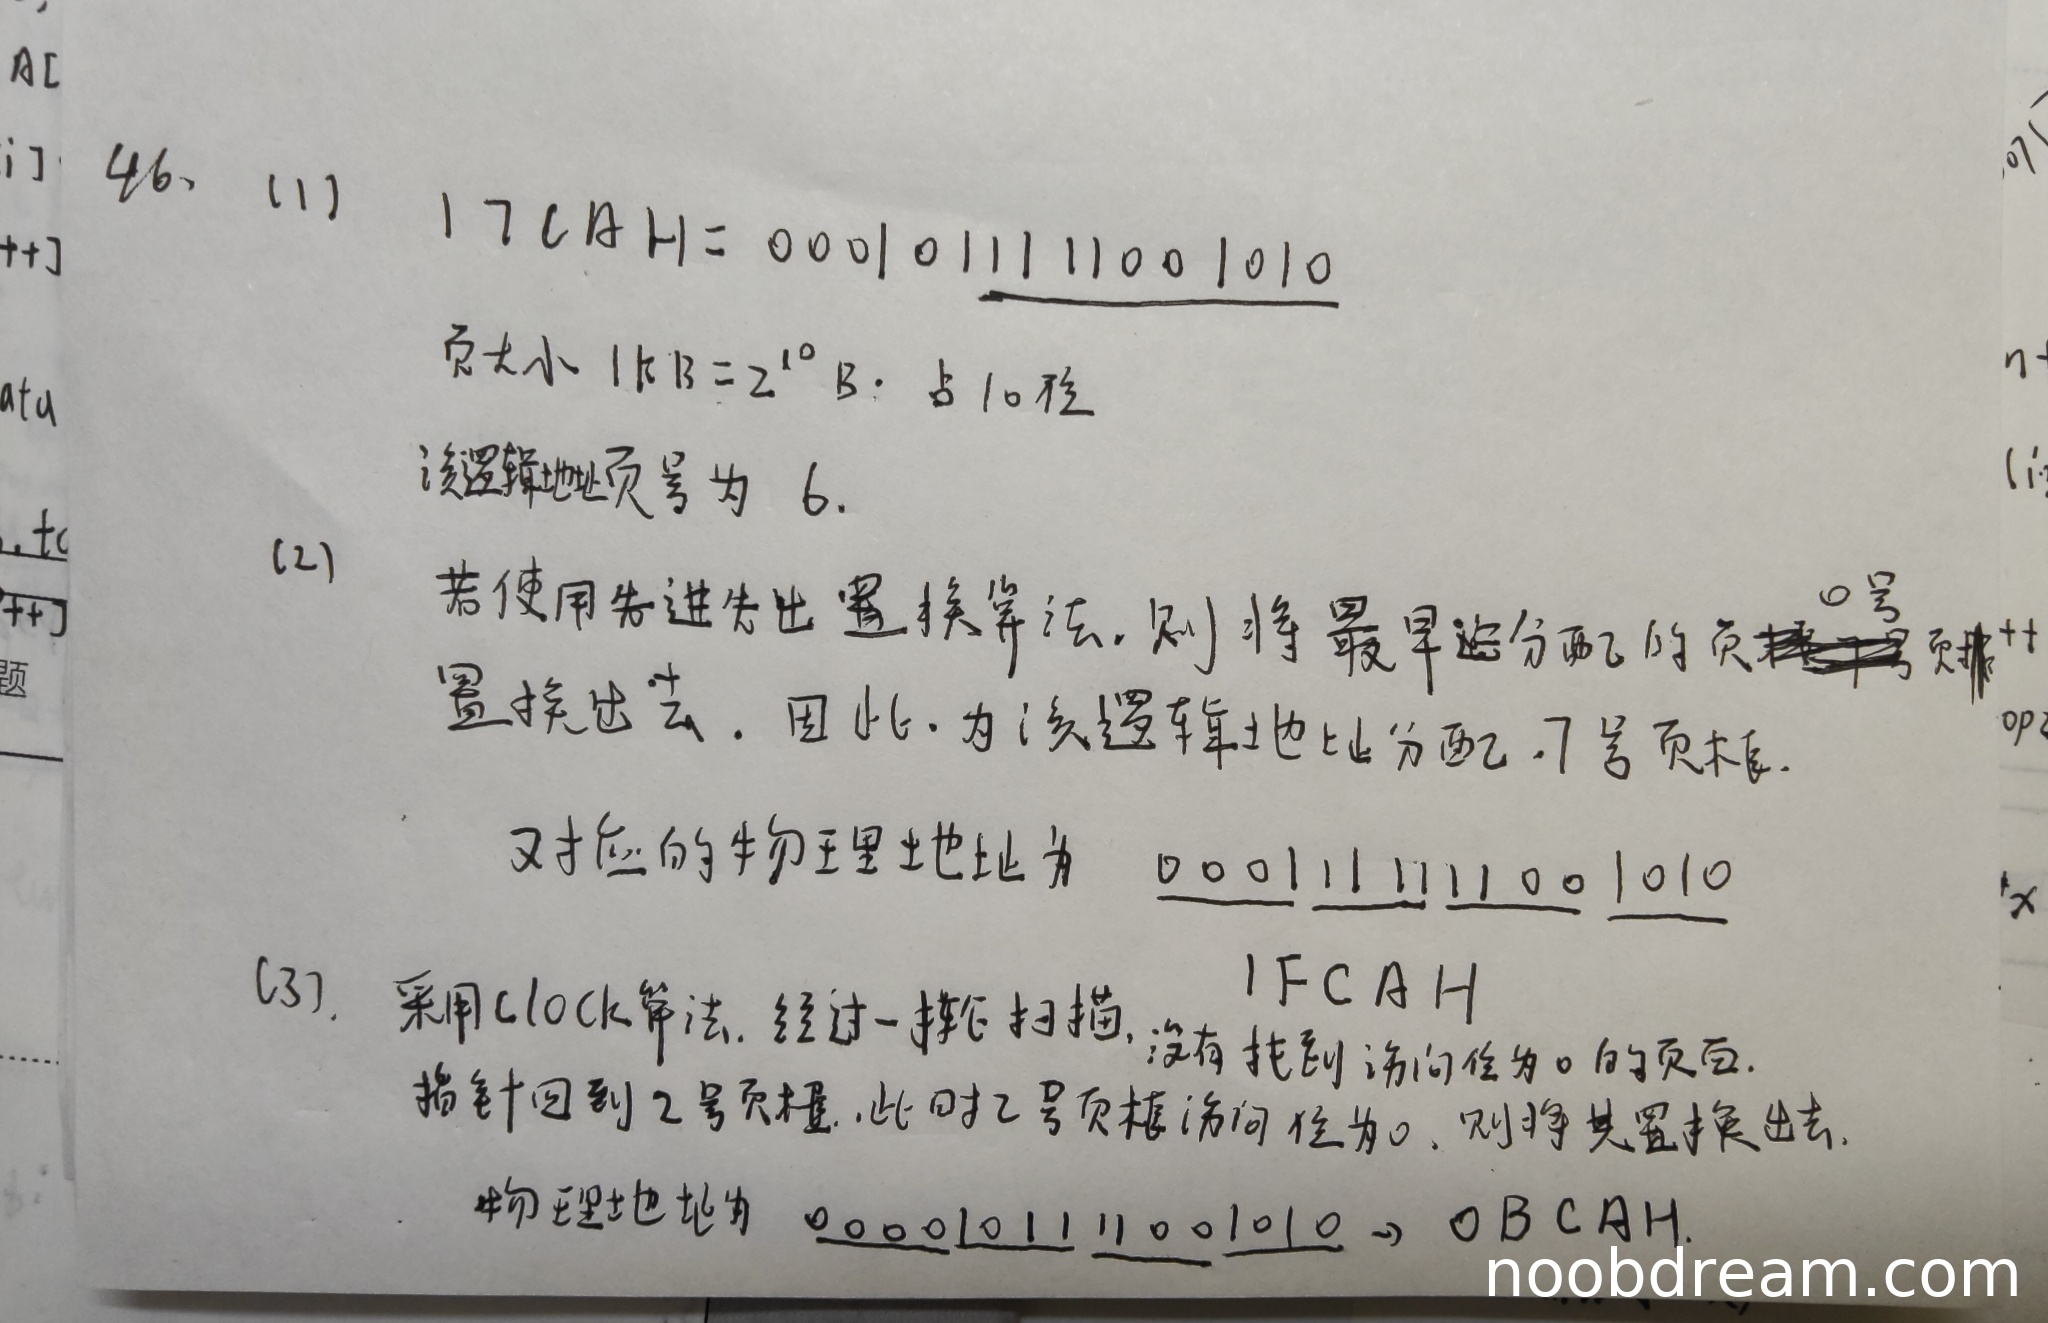 A[
i]
++]
atu
++]
题
46、(1) 17CAH = 0001011111001010
页大小 1KB = 2¹⁰ B. 占10位
该逻辑地址页号为 6.
(2) 若使用先进先出置换算法. 则将最早分配的页 0号页框
置换出去. 因此. 为该逻辑地址分配.7号页框.
对应的物理地址为 0001111111001010
1FCAH
(3). 采用Clock算法. 经过一轮扫描, 没有找到访问位为0的页面.
指针回到2号页框. 此时2号页框访问位为0. 则将其置换出去.
物理地址为 0000101111001010 → 0BCAH.
noobdream.com